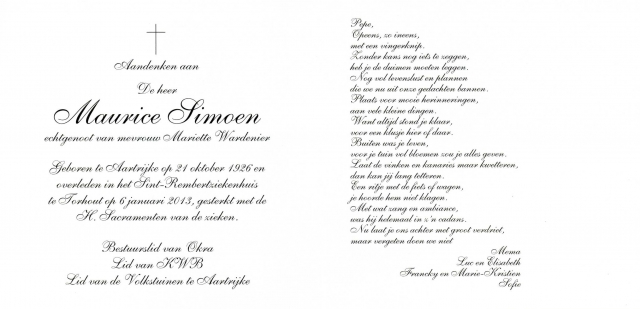 Aandenken aan
De heer
Maurice Simoen
echtgenoot van mevrouw Mariette Wardenier
Geboren te Aartrijke op 21 oktober 1926 en
overleden in het Sint-Rembertziekenhuis
te Torhout op 6 januari 2013, gesterkt met de
H. Sacramenten van de zieken.
Bestuurslid van Okra
Lid van KWB
Lid van de Volkstuinen te Aartrijke
Pepe,
Opeens, zo ineens,
met een vingerknip.
Zonder kans nog iets te zeggen,
heb je de duimen moeten leggen.
Nog vol levenslust en plannen
die we nu uit onze gedachten bannen.
Plaats voor mooie herinneringen,
aan vele kleine dingen.
Want altijd stond je klaar,
voor een klusje hier of daar.
Buiten was je leven,
voor je tuin vol bloemen zou je alles geven.
Laat de vinken en kanaries maar kwetteren,
dan kan jij lang tetteren.
Een ritje met de fiets of wagen,
je hoorde hem niet klagen.
Met wat zang en ambiance,
was hij helemaal in z'n cadans.
Nu laat je ons achter met groot verdriet,
maar vergeten doen we niet
Mema
Luc en Elisabeth
Francky en Marie-Kristien
Sofie